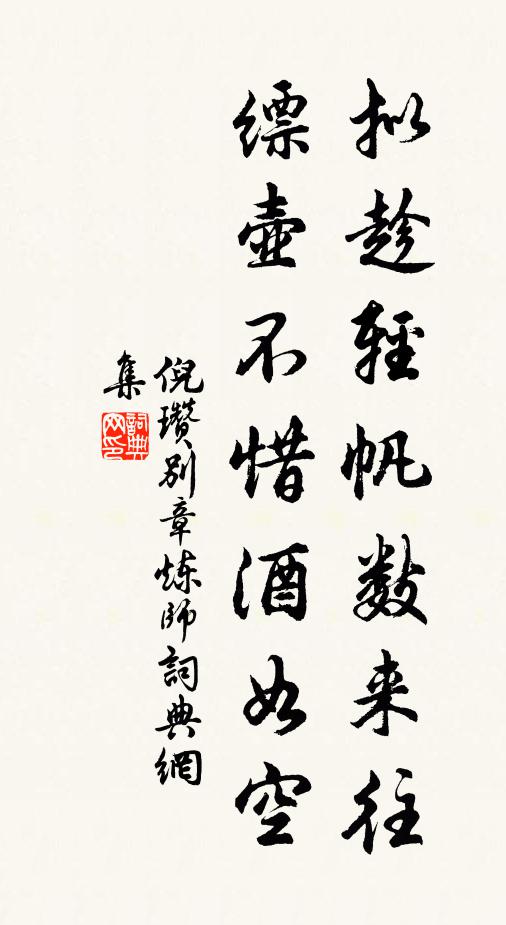 拟趁輕帆数来往
缥壶不惜酒如空
倪瓚别章炼师詞典網
集
詞典网印